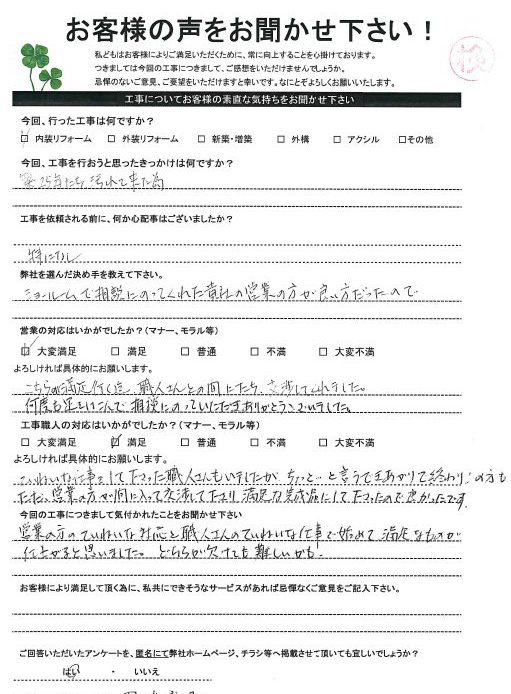 お客様の声をお聞かせ下さい!
私どもはお客様によりご満足いただくために、常に向上することを心掛けております。
つきましては今回の工事につきまして、ご感想をいただけませんでしょうか。
忌憚のないご意見、ご要望をいただけますと幸いです。なにとぞよろしくお願いいたします。
検
工事についてお客様の素直な気持ちをお聞かせ下さい
今回、行った工事は何ですか?
☑ 内装リフォーム □ 外装リフォーム □ 新築・増築 □ 外構 □ アクシル □その他
今回、工事を行おうと思ったきっかけは何ですか?
築25年たち 汚れて来た為
工事を依頼される前に、何か心配事はございましたか?
特になし
弊社を選んだ決め手を教えて下さい。
ショールームで相談にのってくれた貴社の営業の方が良い方だったので
営業の対応はいかがでしたか?(マナー、モラル等)
☑ 大変満足 □ 満足 □ 普通 □ 不満 □ 大変不満
よろしければ具体的にお願いします。
こちらの満足行く迄、職人さんとの間にたち、交渉してくれました。
何度も足をはこんで相談にのっていただきありがとうございました。
工事職人の対応はいかがでしたか?(マナー、モラル等)
□ 大変満足 ☑ 満足 □ 普通 □ 不満 □ 大変不満
よろしければ具体的にお願いします。
ていねいな仕事をして下さった職人さんもいましたが、ちょっと…と言うできあがりで終わりの方も
ただ、営業の方が間に入って交渉して下さり 満足な完成品にして下さったので良かったです。
今回の工事につきまして気付かれたことをお聞かせ下さい
営業の方のていねいな対応と職人さんのていねいな仕事で始めて満足なものが
仕上がると思いました。どちらが欠けても難しいかも
お客様により満足して頂く為に、私共にできそうなサービスがあれば忌憚なくご意見をご記入下さい。
ご回答いただいたアンケートを、匿名にて弊社ホームページ、チラシ等へ掲載させて頂いても宜しいでしょうか?
はい ・ いいえ